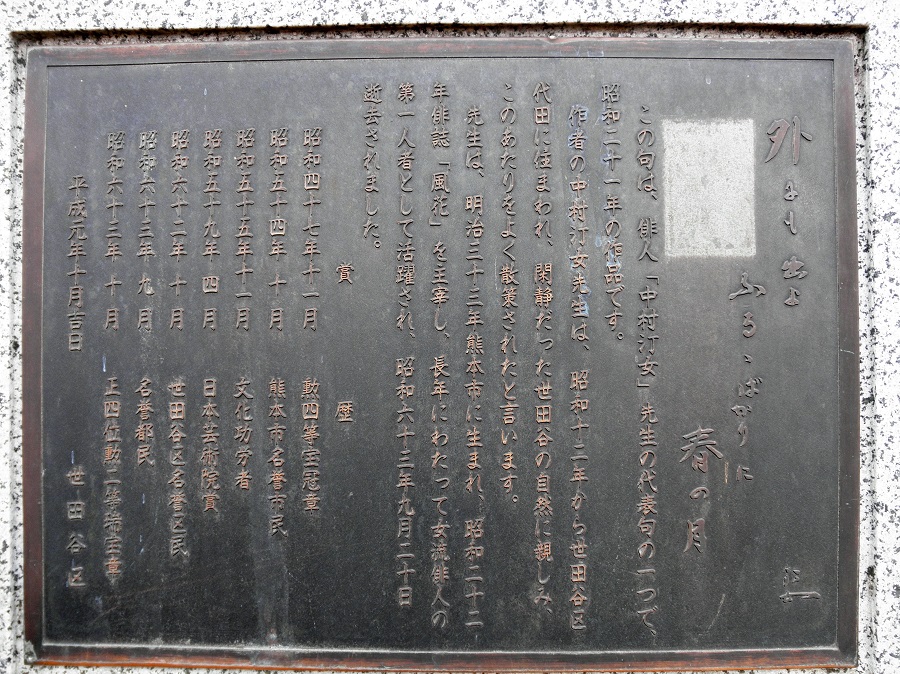 外にも出よ
ふるゝばかりに
春の月
汀女
この句は、俳人「中村汀女」先生の代表句の一つで、
昭和二十一年の作品です。
作者の中村汀女先生は、昭和十二年から世田谷区
代田に住まわれ、閑静だった世田谷の自然に親しみ、
このあたりをよく散策されたと言います。
先生は、明治三十三年熊本市に生まれ、昭和二十二
年俳誌「風花」を主宰し、長年にわたって女流俳人の
第一人者として活躍され、昭和六十三年九月二十日
逝去されました。
賞歴
昭和四十七年十一月 勲四等宝冠章
昭和五十四年十月 熊本市名誉市民
昭和五十五年十一月 文化功労者
昭和五十九年四月 日本芸術院賞
昭和六十二年十月 世田谷区名誉区民
昭和六十三年九月 名誉都民
昭和六十三年十月 正四位勲二等瑞宝章
平成元年十月吉日 世田谷区